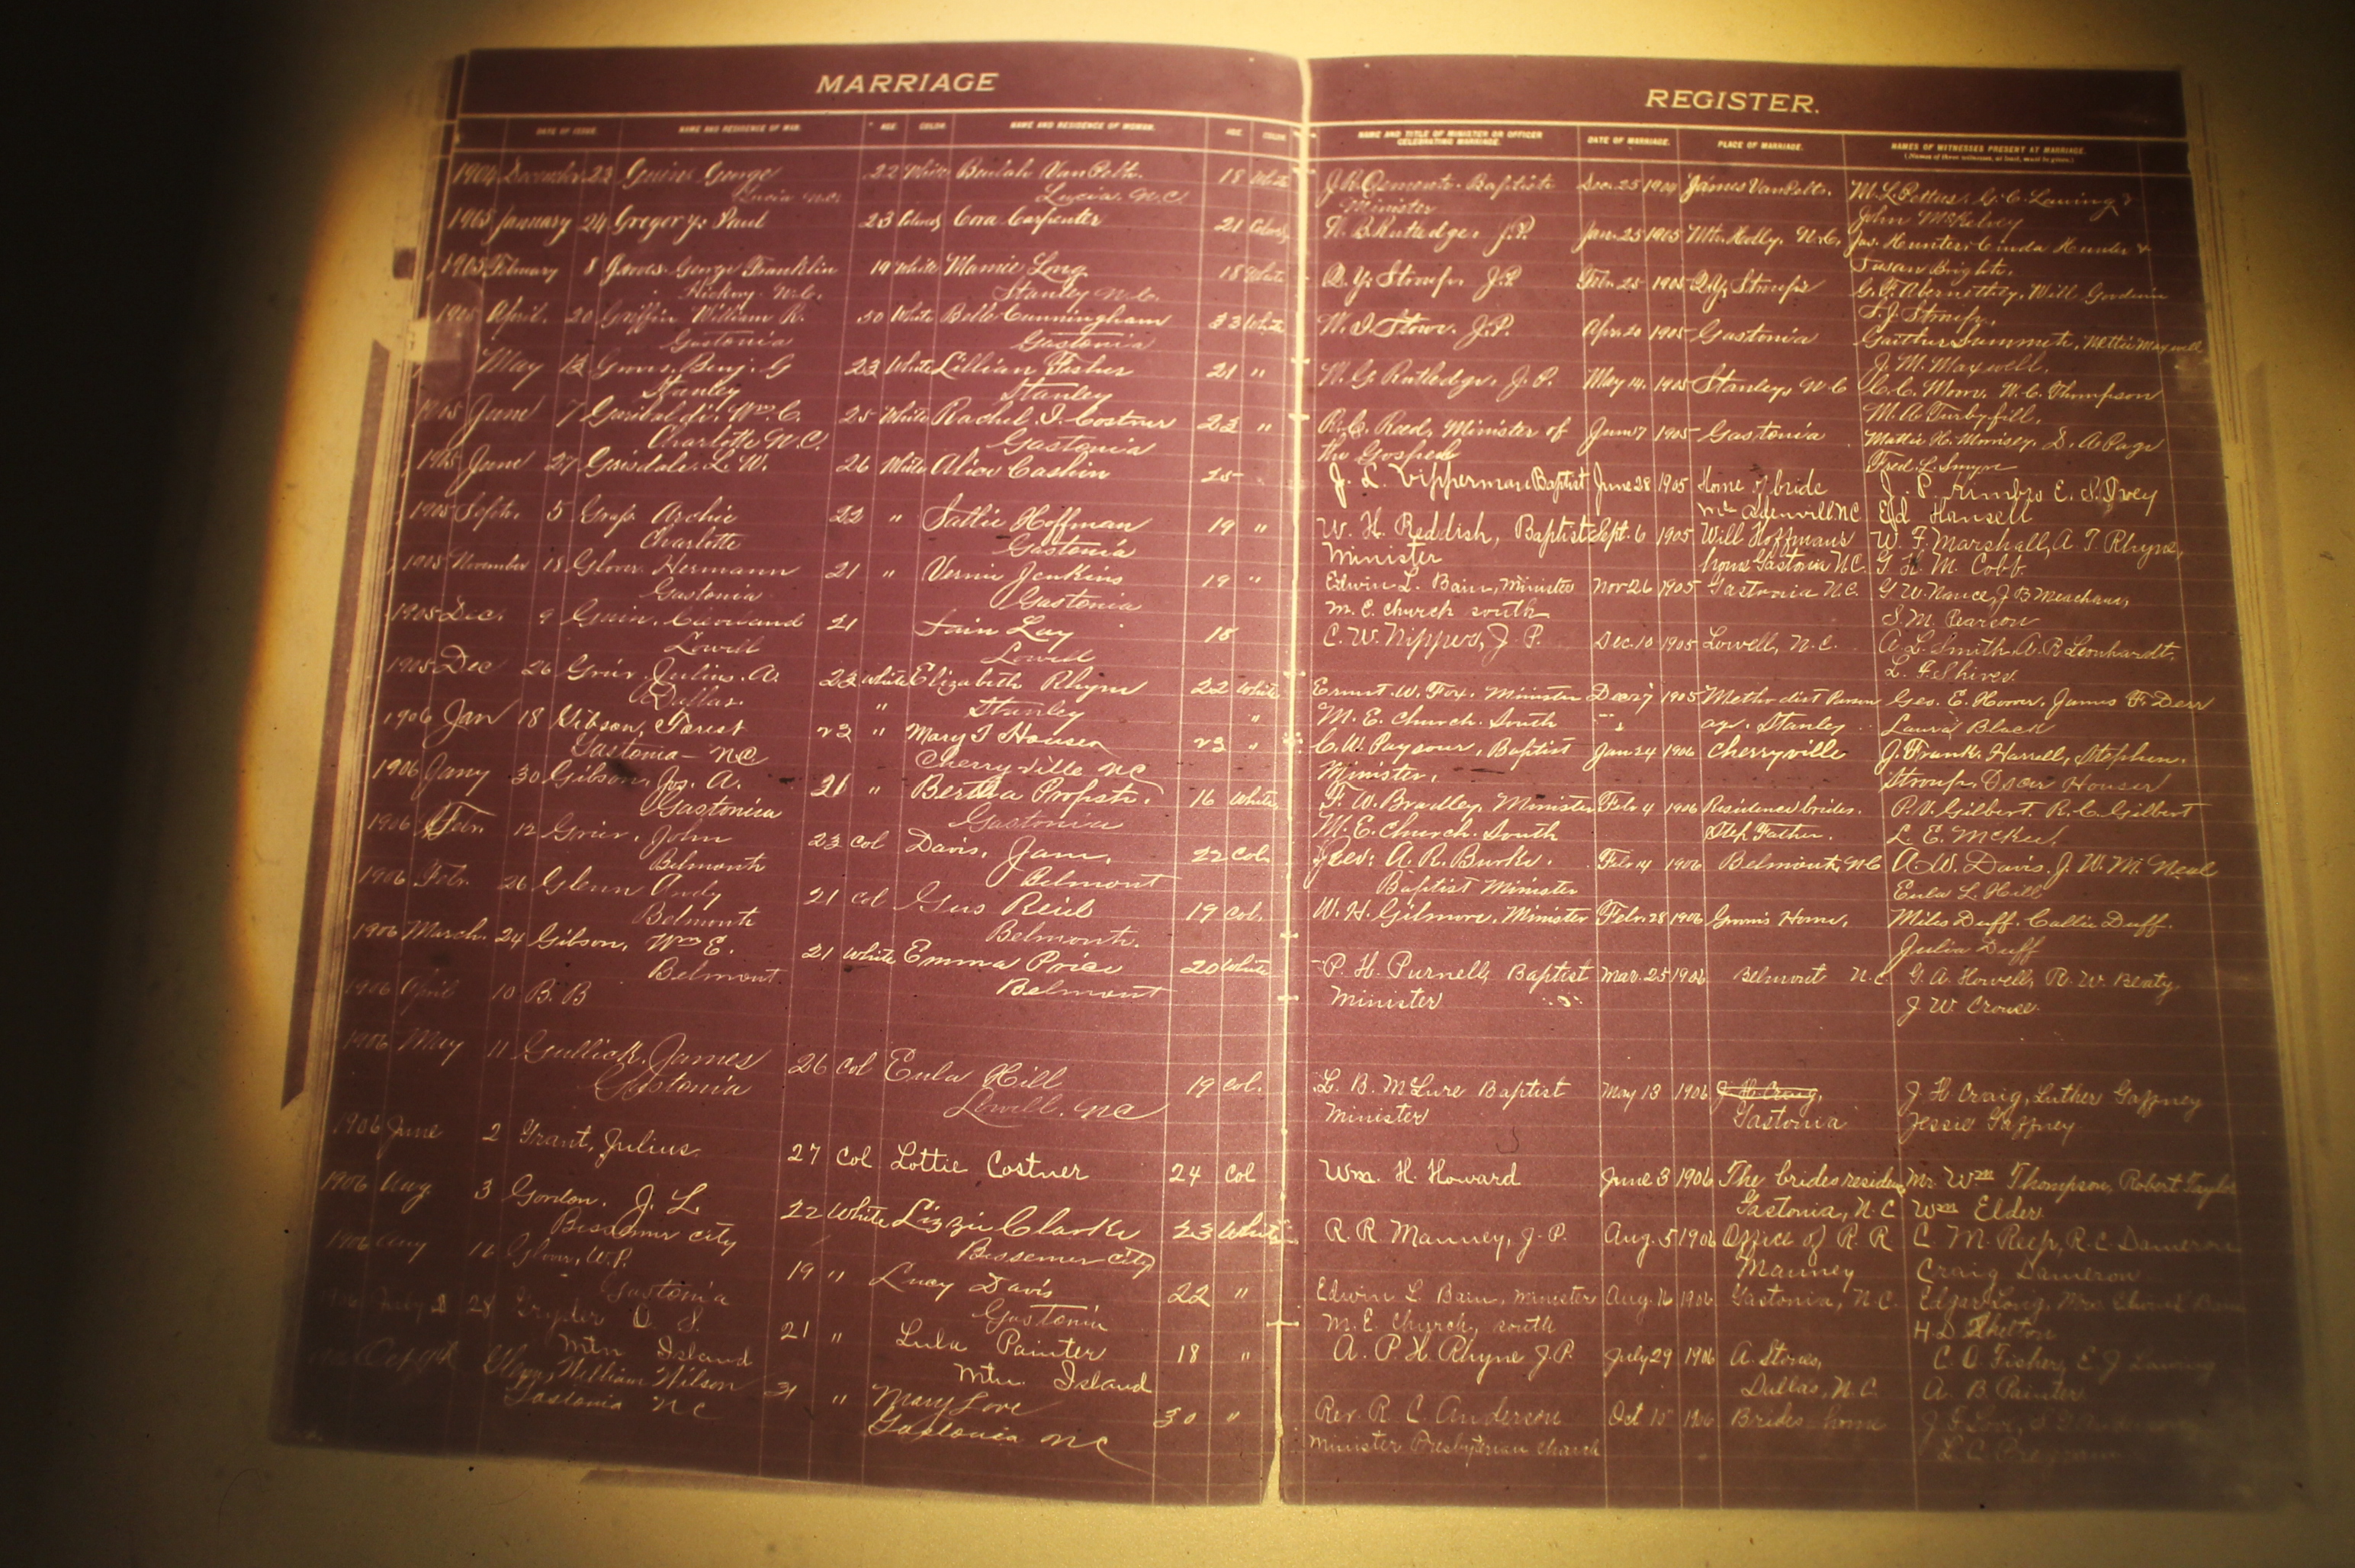 MARRIAGE
REGISTER.
DATE OF ISSUE. NAME AND RESIDENCE OF MAN. AGE. COLOR. NAME AND RESIDENCE OF WOMAN. AGE. COLOR. NAME AND TITLE OF MINISTER OR OFFICER CELEBRATING MARRIAGE. DATE OF MARRIAGE. PLACE OF MARRIAGE. NAMES OF WITNESSES PRESENT AT MARRIAGE.
(Names of three witnesses, at least, must be given.)
1904 December 22 George 22 White Beulah VanPelt. 18 White J. R. Clements. Baptist Dec. 25 1904 James VanPelt. M. L. Pettus,
Lucia N.C. Lucia. N.C. Minister John McKelvey
1905 January 24 Gregory, Paul 23 Cora Carpenter 21 Rutledge, J.P. Jan. 25 1905 Mt. Holly, N.C. Jas. Hunter,
Susan Bright.
1905 February 8 George Franklin 19 White Mamie Long 18 White Stroup J.P. Feb. 25 1905 Stroup's G. F. Abernethy, Will Goodwin
Hickory N.C. Stanley N.C. Stroup.
1905 April. 20 Griffin William R. 50 White Belle Cunningham 33 White W. I. Stowe. J.P. Apr. 20 1905 Gastonia Summett, Nettie Maxwell
Gastonia Gastonia J. M. Maxwell.
May 13 Benj. G 23 White Lillian Fisher 21 " W. G. Rutledge, J.P. May 14. 1905 Stanley, N.C C. C. W. C. Thompson
Stanley Stanley M. A. Turbyfill.
1905 June 7 Garibaldi, Wm C. 25 White Rachel I. Costner 23 " R. C. Reed, Minister of June 7 1905 Gastonia Mattie H. Morrisey. D. A. Page
Charlotte N.C. Gastonia the Gospel Fred. L. Smyre
1905 June 27 Grisdale. L. W. 26 White Alice Cashin 25 J. L. Vipperman Baptist June 28 1905 Home of bride J. P. E. S. Ivey
McAdenville NC Ed Hansell
1905 Sept. 5 Archie 22 " Sallie Hoffman 19 " W. H. Reddish, Baptist Sept. 6 1905 Will Hoffman's W. F. Marshall, A. T. Rhyne,
Charlotte Gastonia Minister home Gastonia N.C. G. H. M. Cobb
1905 November 18 Glover Hermann 21 " Vernie Jenkins 19 " Edwin L. Bain, Minister Nov 26 1905 Gastonia N.C. G. W. Nance, J B Meacham,
Gastonia Gastonia M. E. Church south S. M. Pearson
1905 Dec. 9 21 Lay 18 C. W. Nippers, J. P. Dec. 10 1905 Lowell, N.C. A. L. Smith, A. R. Leonhardt.
Lowell Lowell L. F. Shives
1905 Dec 26 Grier. Julius. A. 23 White Elizabeth Rhyne 22 White Ernest. W. Fox. Minister Dec 27 1905 Methodist Parson Geo. E. Hoover. James F. Derr
Dallas. " Stanley " M. E. Church. South age. Stanley Laura Black
1906 Jan 18 Gibson, Forest 23 " Mary I Houser 23 " C. W. Paysour, Baptist Jan 24 1906 Cherryville J. Frank. Harrell, Stephen.
Gastonia - NC Cherryville NC Minister. Stroup, Houser
1906 Jany 30 Gibson, Jos. A. 21 " Bertha Propst. 16 White F. W. Bradley, Minister Feb 4 1906 Residence brides. P. V. Gilbert. R. C. Gilbert
Gastonia Gastonia M. E. Church. South Step Father. L. E. McKee.
1906 Feb. 12 Grier, John 23 col Davis, Jane. 22 Col. Rev: A. R. Burke. Feb 14 1906 Belmont, N.C A. W. Davis. J. W. McNeal
Belmont Belmont Baptist Minister Eula L. Hill
1906 Feb. 26 Glenn Andy 21 col Gus Reid 19 col. W. H. Gilmore, Minister Feb. 28 1906 Groom's Home. Miles Duff. Callie Duff.
Belmont Belmont. Julia Duff
1906 March. 24 Gibson, Wm E. 21 White Emma Price 20 White P. H. Purnell, Baptist Mar. 25 1906 Belmont N.C. G. A. Howell, R. W. Beaty,
Belmont Belmont Minister J. W. Crouse.
1906 April 10 B. B
1906 May 11 Gullick. James 26 col Eula Hill 19 Col. L. B. McLure Baptist May 13 1906 J. H. Craig, J. H Craig, Luther Gaffney
Gastonia Lowell. NC Minister Gastonia Jessie Gaffney
1906 June 2 Grant, Julius. 27 Col Lottie Costner 24 Col Wm. H. Howard June 3 1906 The brides residen Mr. Wm Thompson, Robert Taylor
Gastonia, N.C Wm Elder
1906 Aug. 3 Gordon. J. L. 22 White Lizzie Clarke 23 White R. R Manney, J. P. Aug. 5 1906 Office of R. R C. M. Reep, R. C Dameron
Bessemer City Bessemer City Manney Craig Dameron
1906 Aug 16 Glover, W.P. 19 " Lucy Davis 22 " Edwin L. Bain, minister Aug. 16 1906 Gastonia, N.C. Edgar Long, Mrs.
Gastonia Gastonia M. E. Church, south H D Shelton
July 28 Gryder O. S. 21 " Lula Painter 18 " A. P. H. Rhyne J.P. July 29 1906 A. Stowes, C. O. Fisher, E. J.
Mtn Island Mtn. Island Dallas, N.C. A. B. Painter
Oct 9th Glenn, William Wilson 31 " Mary Love 30 " Rev. R. C. Anderson Oct 10 1906 Brides home J. F. Love,
Gastonia NC Gastonia NC Minister Presbyterian Church L. C.